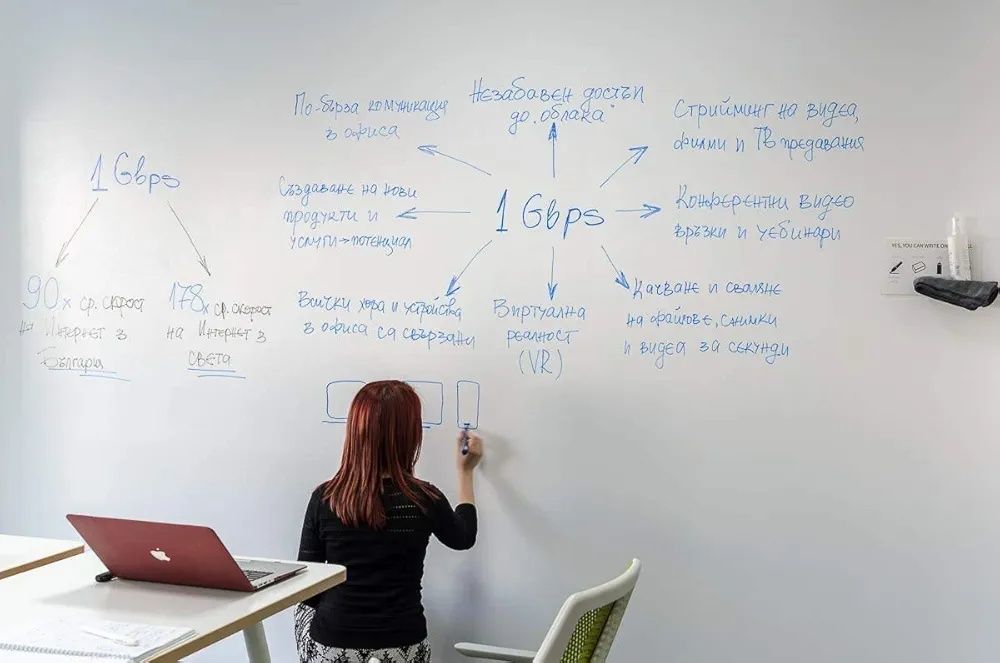 1 Gbps
90x ср. скорост
на Интернет в
България
178x ср. скорост
на Интернет в
света
По-бърза комуникация
в офиса
Незабавен достъп
до „облака“
Стрийминг на видеа,
филми и ТВ предавания
Създаване на нови
продукти и
услуги → потенциал
1 Gbps
Конферентни видео
връзки и уебинари
Всички хора и устройства
в офиса са свързани
Виртуална
реалност
(VR)
Качване и сваляне
на файлове, снимки
и видеа за секунди
YES, YOU CAN WRITE ON